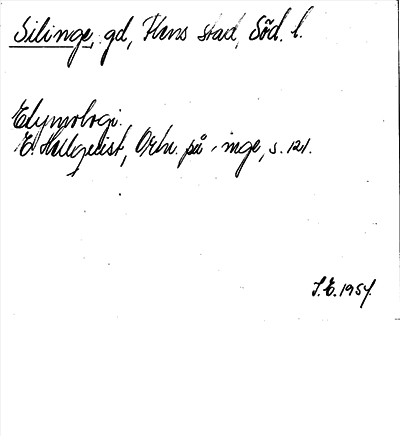 Silinge, gd, Flens stad, Söd. l.
Etymologi.
E. Hellquist, Ortn. på -inge, s. 121.
S.E. 1957.